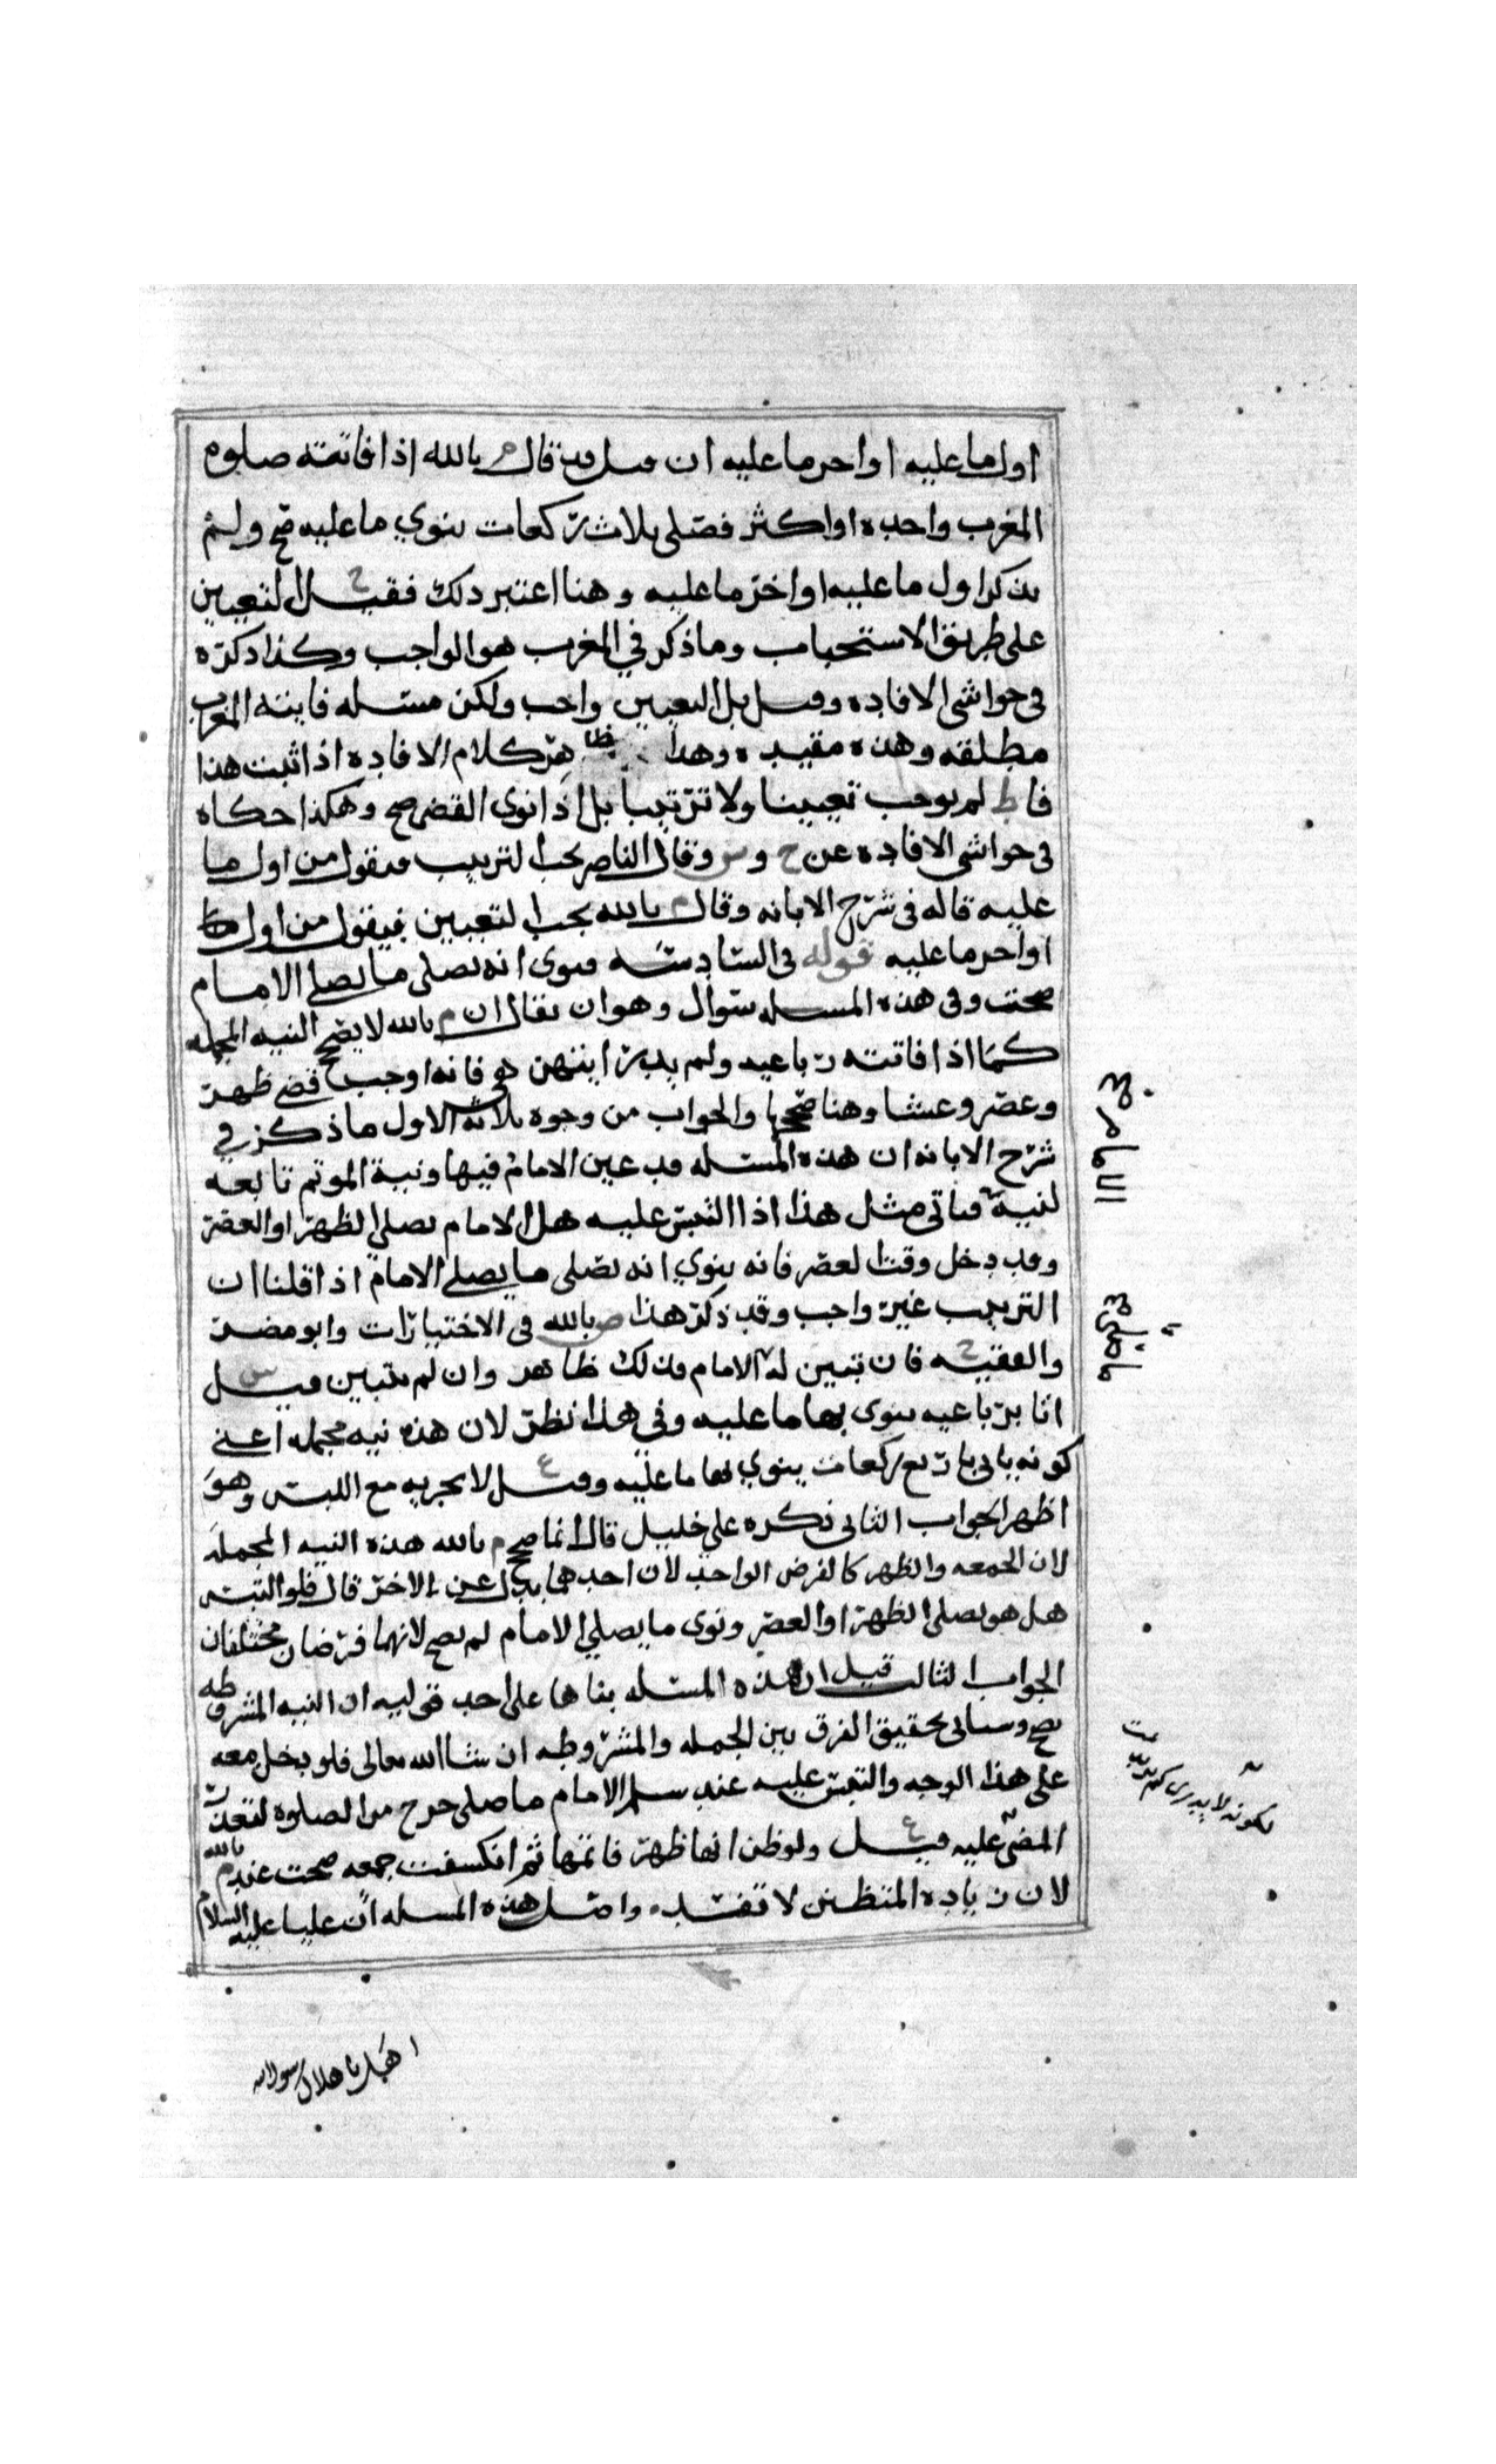 اول ما عليه او اخر ما عليه ان قيل قد قال م بالله اذا فاتته صلوه
المغرب واحده او اكثر فصلى ثلاث ركعات ينوي ما عليه صح ولم
يذكر اول ما عليه او اخر ما عليه وهنا اعتبر ذلك فقيل ح التعيين
على طريق الاستحباب وما ذكر في المغرب هو الواجب وكذا ذكره
في حواشي الافاده وقيل بل التعيين واجب ولكن مسئله فايته المغرب
مطلقه وهذه مقيده وهذا ظاهر كلام الافاده اذا ثبت هذا
فا ط لم يوجب تعيينا ولا ترتيبا بل اذا نوى القضى صح وهكذا حكاه
في حواشي الافاده عن ح و س وقال الناصر يجب الترتيب فيقول من اول ما
عليه قاله في شرح الابانه وقال م بالله يجب التعيين فيقول من اول ما
او اخر ما عليه قوله في السادسه ينوى انه يصلي ما يصلي الامام
صحت وفي هذه المسئله سؤال وهو ان يقال ان م بالله لا يصحح النيه المجمله
كما اذا فاتته رباعيه ولم يدر ايتهن هي فانه اوجب قضى ظهر
وعصر وعشا وهنا صححها والجواب من وجوه ثلاثه الاول ما ذكر في
شرح الابانه ان هذه المسئله قد عين الامام فيها ونية الموتم تابعه
لنيته فياتي مثل هذا اذا التبس عليه هل الامام يصلي الظهر او العصر
وقد دخل وقت العصر فانه ينوي انه يصلي ما يصلي الامام اذا قلنا ان
الترتيب غير واجب وقد ذكر هذا ص بالله في الاختيارات وابو مضر
والفقيه ح فان تبين له الامام فذلك ظاهر وان لم يتبين قيل س
اتا برباعيه ينوى بها ما عليه وفي هذا نظر لان هذه نيه مجمله اعني
كونه ياتي باربع ركعات ينوي بها ما عليه وقيل ع لا يجزيه مع اللبس وهو
اظهر الجواب الثاني ذكره علي خليل قال انما صحح م بالله هذه النيه المجمله
لان الجمعه والظهر كالفرض الواحد لان احدهما بدل عن الاخر قال فلو التبس
هل هو يصلي الظهر او العصر ونوى ما يصلي الامام لم يصح لانهما فرضان مختلفان
الجواب الثالث قيل ان هذه المسئله بناها على احد قوليه ان النيه المشروطه
تصح وسياتي تحقيق الفرق بين المجمله والمشروطه ان شا الله تعالى فلو دخل معه
على هذا الوجه والتبس عليه عند سلم الامام ما صلى خرج من الصلوة لتعذر
المضي عليه قيل ع ولو ظن انها ظهر فاتمها ثم انكشفت جمعه صحت عند م بالله
لان زيادة المتظنن لا تفسد واصل هذه المسئله ان عليا عليه السلام
لكونه لا يدري كم
اهل با هلال رسول الله